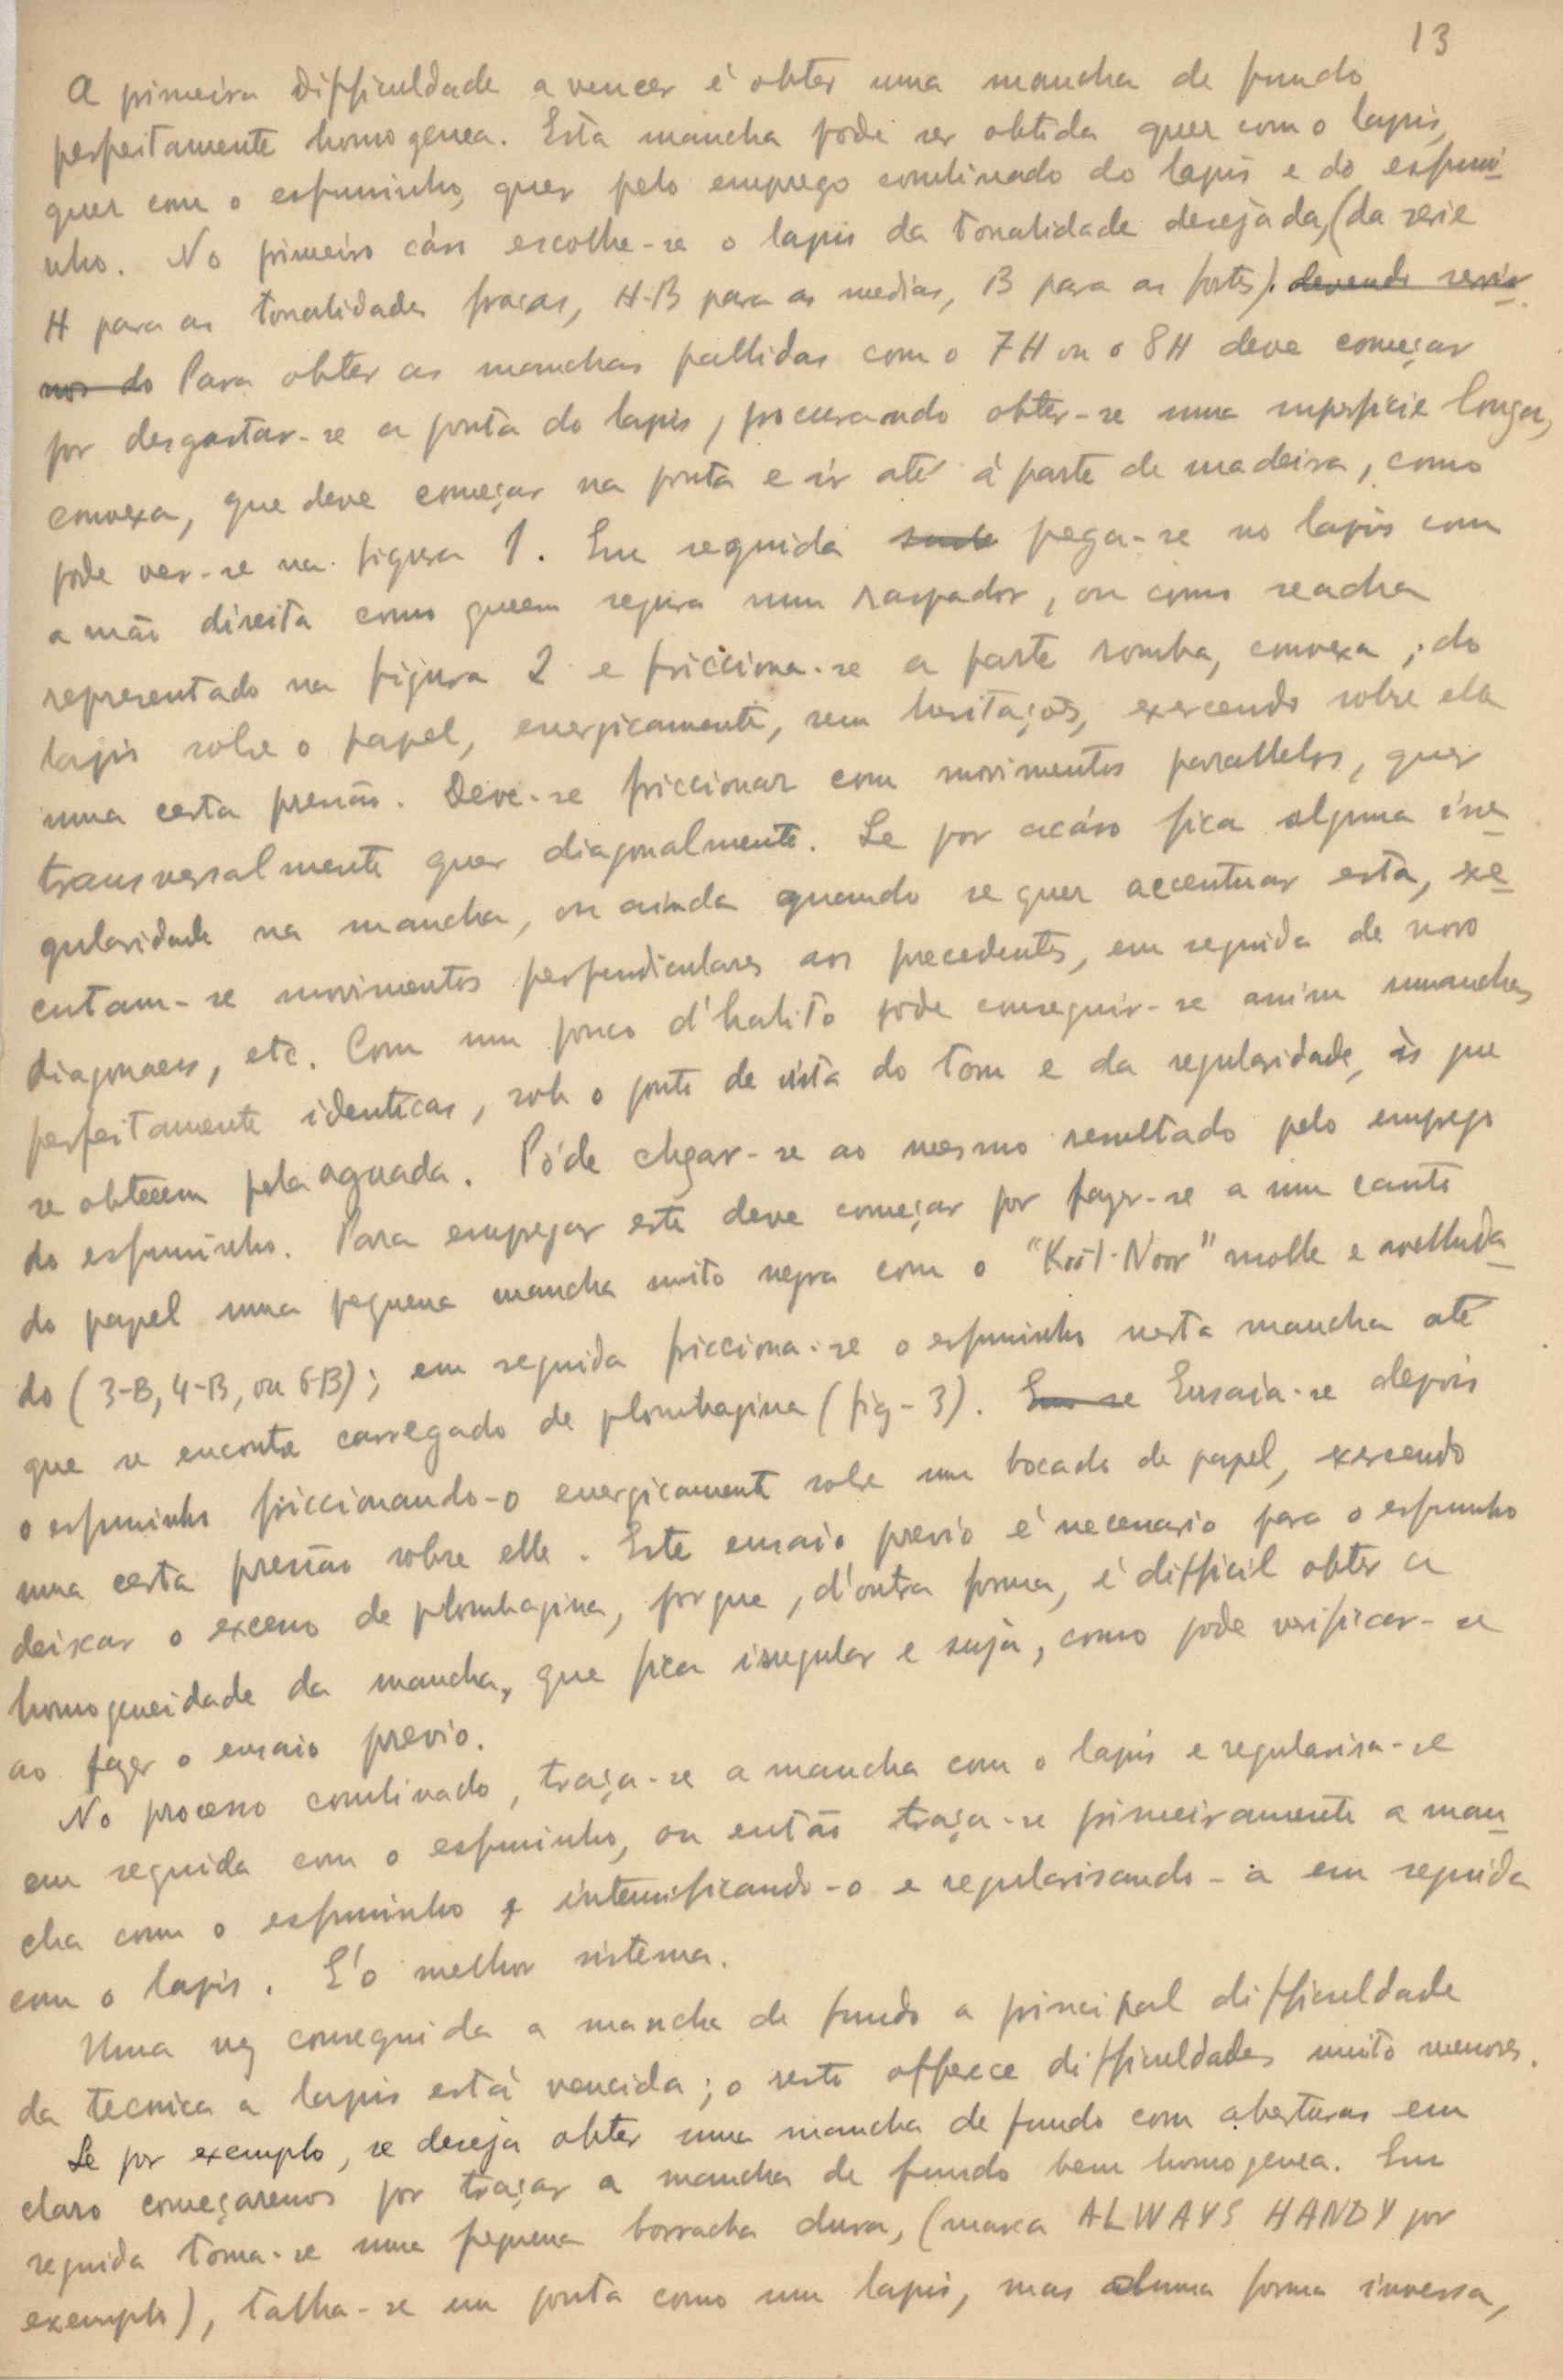 13
A primeira difficuldade a vencer é obter uma mancha de fundo
perfeitamente homogenea. Esta mancha pode ser obtida quer com o lapis,
quer com o esfuminho, quer pelo emprego combinado do lapis e do esfumi-
nho. No primeiro cáso escolhe-se o lapis da tonalidade desejada, (da serie
H para as tonalidades fracas, H-B para as medias, B para as fortes). devendo servir
nos do Para obter as manchas pallidas com o 7H ou o 8H deve começar
por desgastar-se a ponta do lapis, procurando obter-se uma superficie longa,
convexa, que deve começar na ponta e ir até á parte de madeira, como
pode ver-se na figura 1. Em seguida pega-se no lapis com
a mão direita como quem segura num raspador, ou como se acha
representado na figura 2 e fricciona-se a parte romba, convexa, do
lapis sobre o papel, energicamente, sem hesitações, exercendo sobre ela
uma certa pressão. Deve-se friccionar com movimentos parallelos, quer
transversalmente quer diagonalmente. Se por acáso fica alguma irre-
gularidade na mancha, ou ainda quando se quer accentuar esta, exe-
cutam-se movimentos perpendiculares aos precedentes, em seguida de novo
diagonaes, etc. Com um pouco d'habito póde conseguir-se assim manchas
perfeitamente identicas, sob o ponto de vista do tom e da regularidade, ás que
se obteem pela aguada. Póde chgar-se ao mesmo resultado pelo emprego
do esfuminho. Para empregar este deve começar por fazer-se a um canto
do papel uma pequena mancha muito negra com o "Kool-Noor" molle e avelluda-
do (3-B, 4-B, ou 6-B); em seguida fricciona-se o esfuminho nesta mancha até
que se encontre carregado de plombagina (fig-3). Em se Ensaia-se depois
o esfuminho friccionando-o energicamente sobre um bocado de papel, exercendo
uma certa pressão sobre elle. Este ensaio previo é necessario para o esfuminho
deixar o excesso de plombagina, porque, d'outra forma, é difficil obter a
homogeneidade da mancha, que fica irregular e suja, como pode verificar-se
ao fazer o ensaio previo.
No processo combinado, traça-se a mancha com o lapis e regularisa-se
em seguida com o esfuminho, ou então traça-se primeiramente a man-
cha com o esfuminho e intensificando-o e regularisando-a em seguida
com o lapis. E'o melhor sistema.
Uma vez conseguida a mancha de fundo a principal difficuldade
da tecnica a lapis está vencida; o resto offerece difficuldades muito menores.
Se por exemplo, se deseja obter uma mancha de fundo com aberturas em
claro começaremos por traçar a mancha de fundo bem homogenea. Em
seguida toma-se uma pequena borracha dura, (marca ALWAYS HANDY por
exemplo), talha-se em ponta como um lapis, mas duma forma inversa,